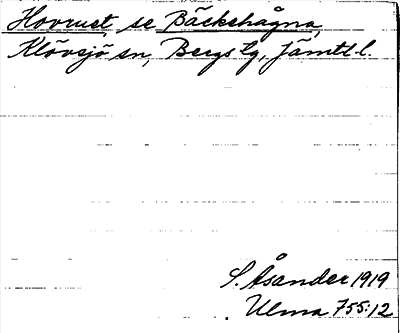 Hovrust, se Bäckshågna,
Klövsjö sn, Bergs tg, Jämtl l.
S. Åsander 1919
Ulma 755:12